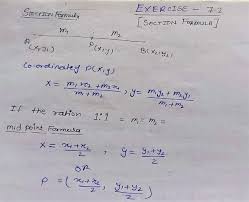 Section Formula
EXERCISE - 7.2
[SECTION FORMULA]
m₁ m₂
A(x₁,y₁) P(x,y) B(x₂,y₂)
Co-ordinates P(x,y)
x = m₁x₂ + m₂x₁ / m₁ + m₂ , y = m₁y₂ + m₂y₁ / m₁ + m₂
If the ration 1:1 = m₁ = m₂ =
mid point Formula
x = x₁ + x₂ / 2 , y = y₁ + y₂ / 2
OR
P = (x₁ + x₂ / 2 , y₁ + y₂ / 2)